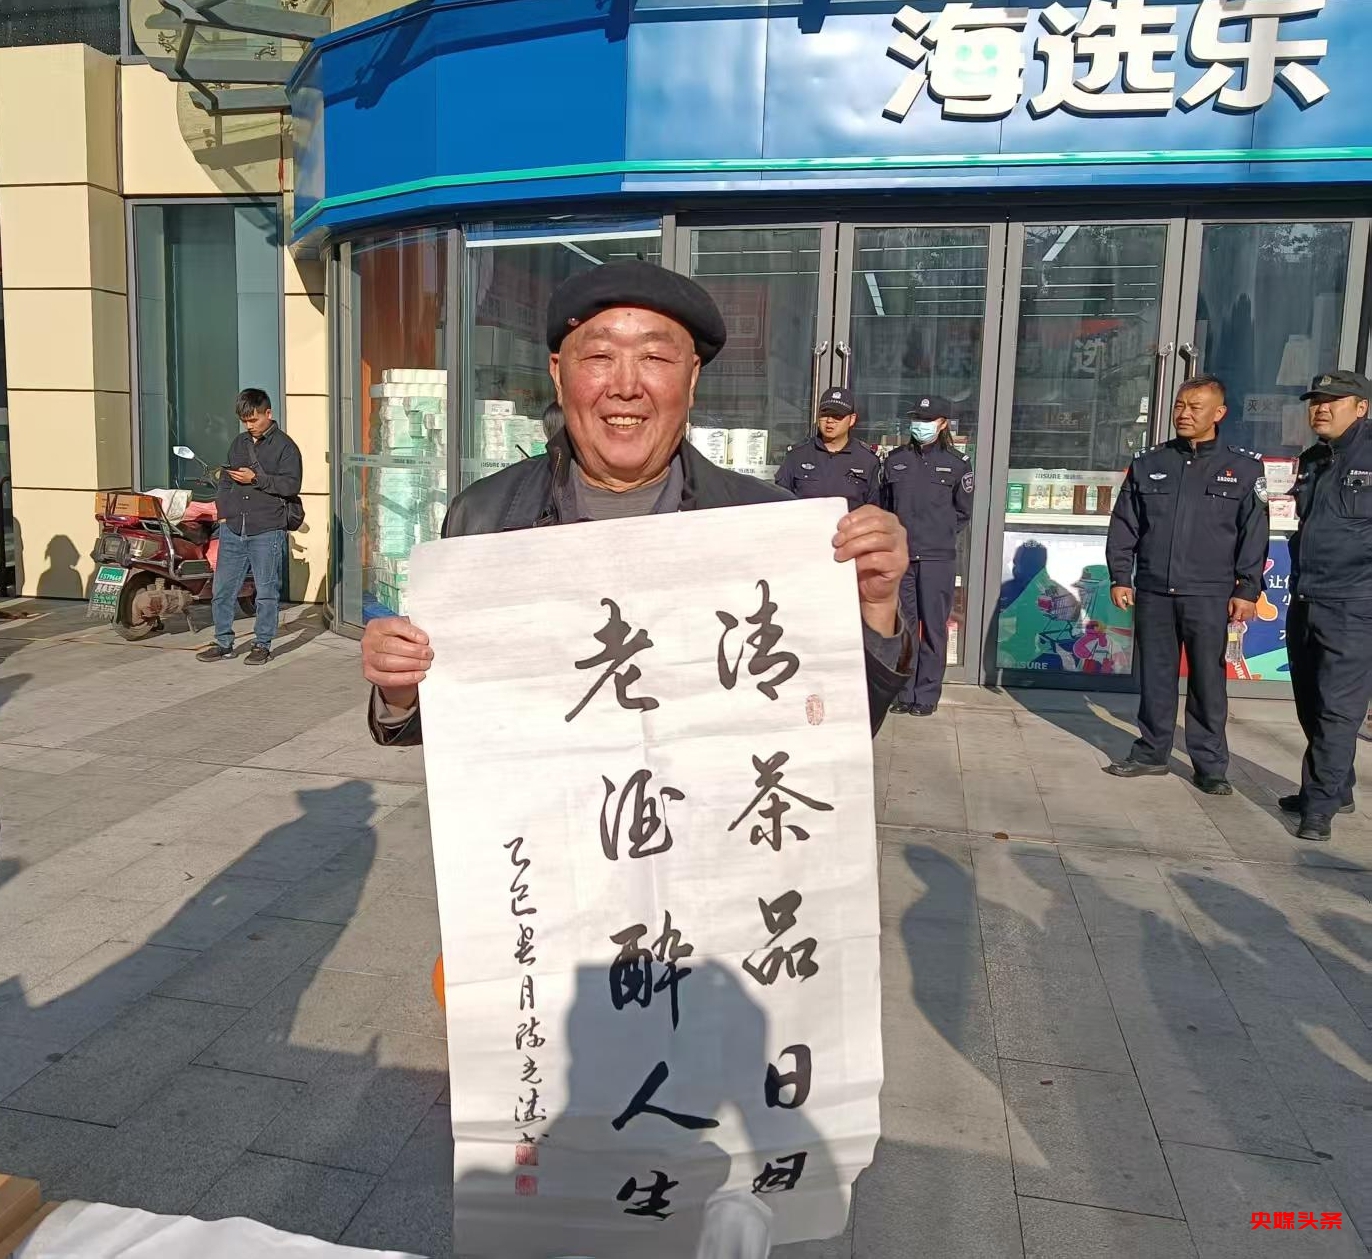 海选乐
清茶品日月
老酒醉人生
乙巳春月陈光德书
让你
央媒头条